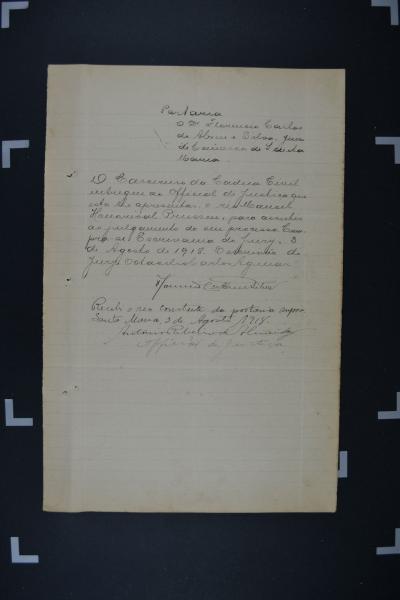 Portaria
O Dr. Florencio Carlos
de Abreu e Silva, Juiz
da Comarca de Sta.
Maria.
O Carcereiro da Cadeia Civil
entregue ao Official de Justiça que
esta lhe apresentar, o réu Manoel
para assistir
ao julgamento de seu processo.
Cumpra-se. Escrivania do Jury, 3
de Agosto de 1918. O escrivão do
Jury,
Recebi o reo constante da portaria supra.
Santa Maria, 3 de Agosto 1918.
Antonio Ribeiro de Almeida
Official de Justiça